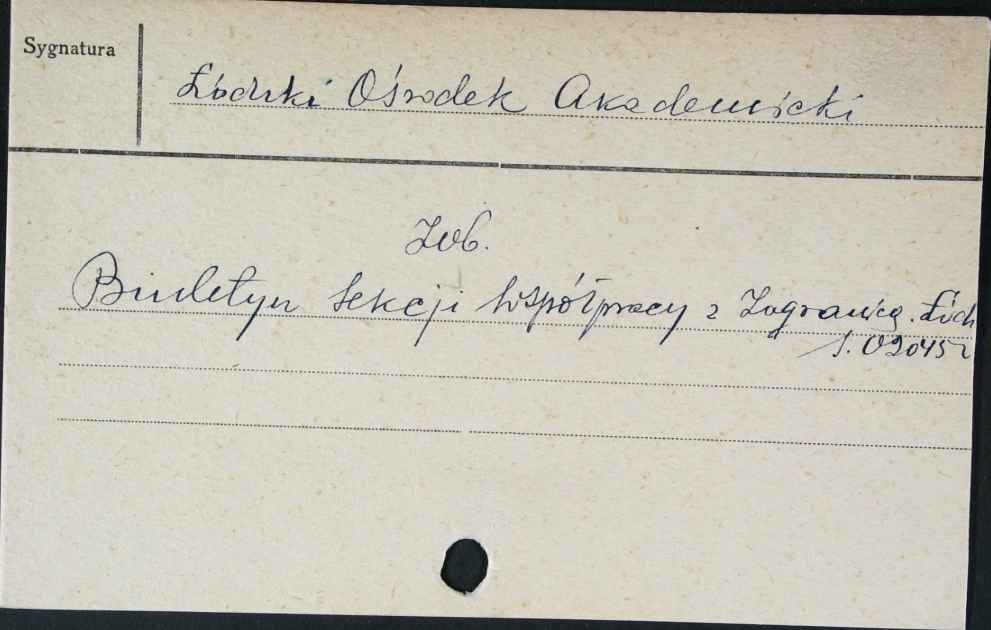 Sygnatura
Łódzki Ośrodek Akademicki
Zob.
Biuletyn Sekcji Współpracy z Zagranicą. Łódź
S. 020452